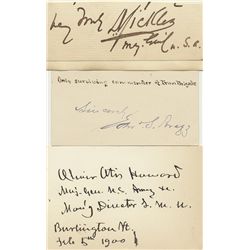 very truly D Sickles
Maj. Genl U.S.A.
Only surviving commander of Iron Brigade
Sincerely
John S. Bragg
Oliver Otis Howard
Maj. Gen. U.S. Army &c.
Man'g Director L. M. U.
Burlington Vt.
Feb 5th 1900